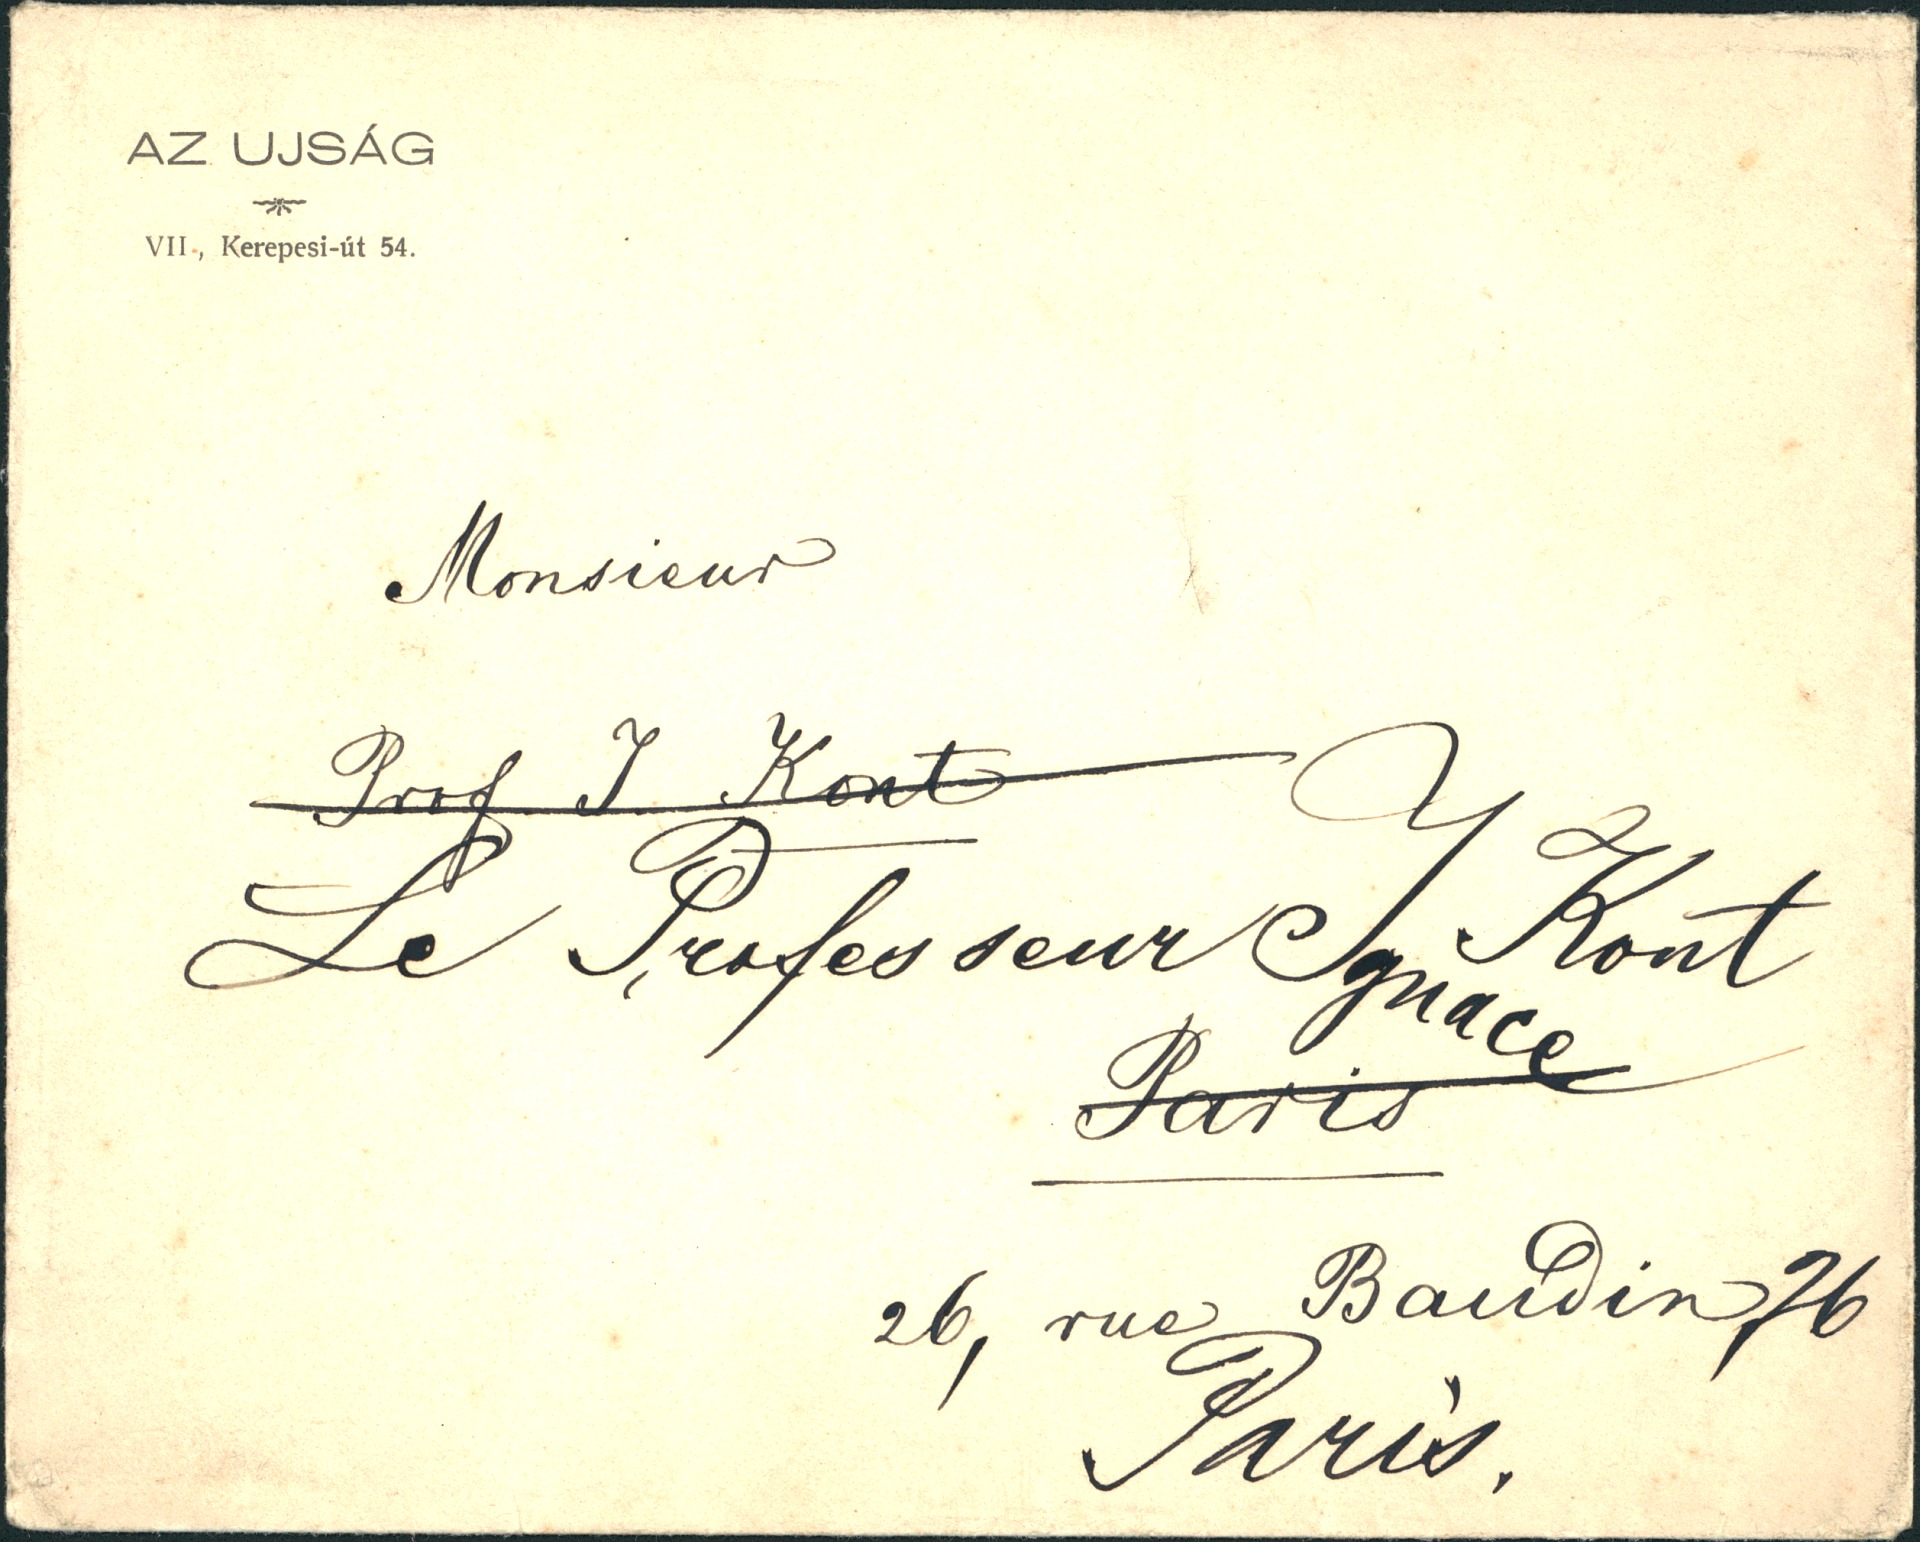 AZ UJSÁG
VII., Kerepesi-út 54.
Monsieur
Prof J Kont
Le Professeur Ignace Kont
Paris
26, rue Baudin, 26
Paris.